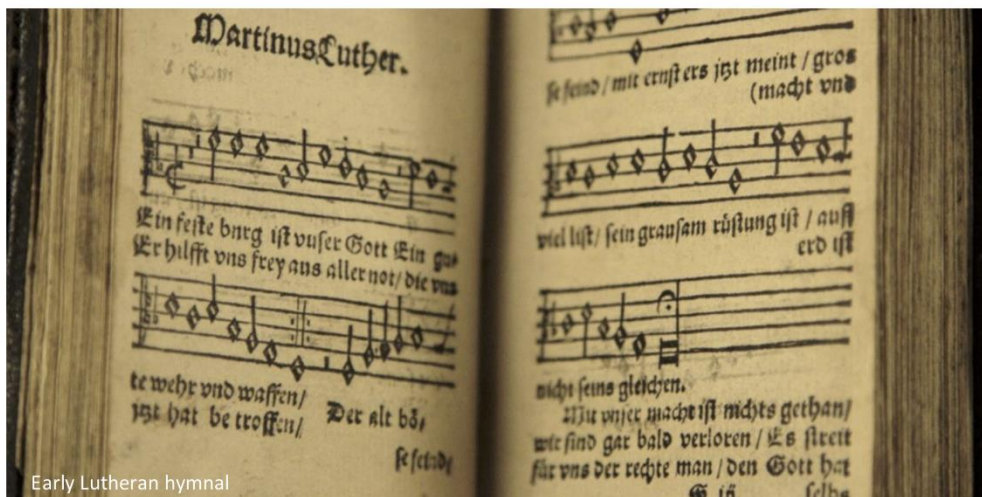 Martinus Luther.
Ein feste bnrg ist vnser Gott Ein gu⸗
Er hilfft vns frey aus aller not/ die vns
te wehr vnd waffen/
jtzt hat be troffen/
Der alt bö⸗
se feind/
se feind/ mit ernst ers jtzt meint / gros
(macht vnd
viel list/ sein grausam rüstung ist / auff
erd ist
nicht seins gleichen.
Mit vnser macht ist nichts gethan/
wir sind gar bald verloren / Es streit
für vns der rechte man / den Gott hat
selbs
Early Lutheran hymnal